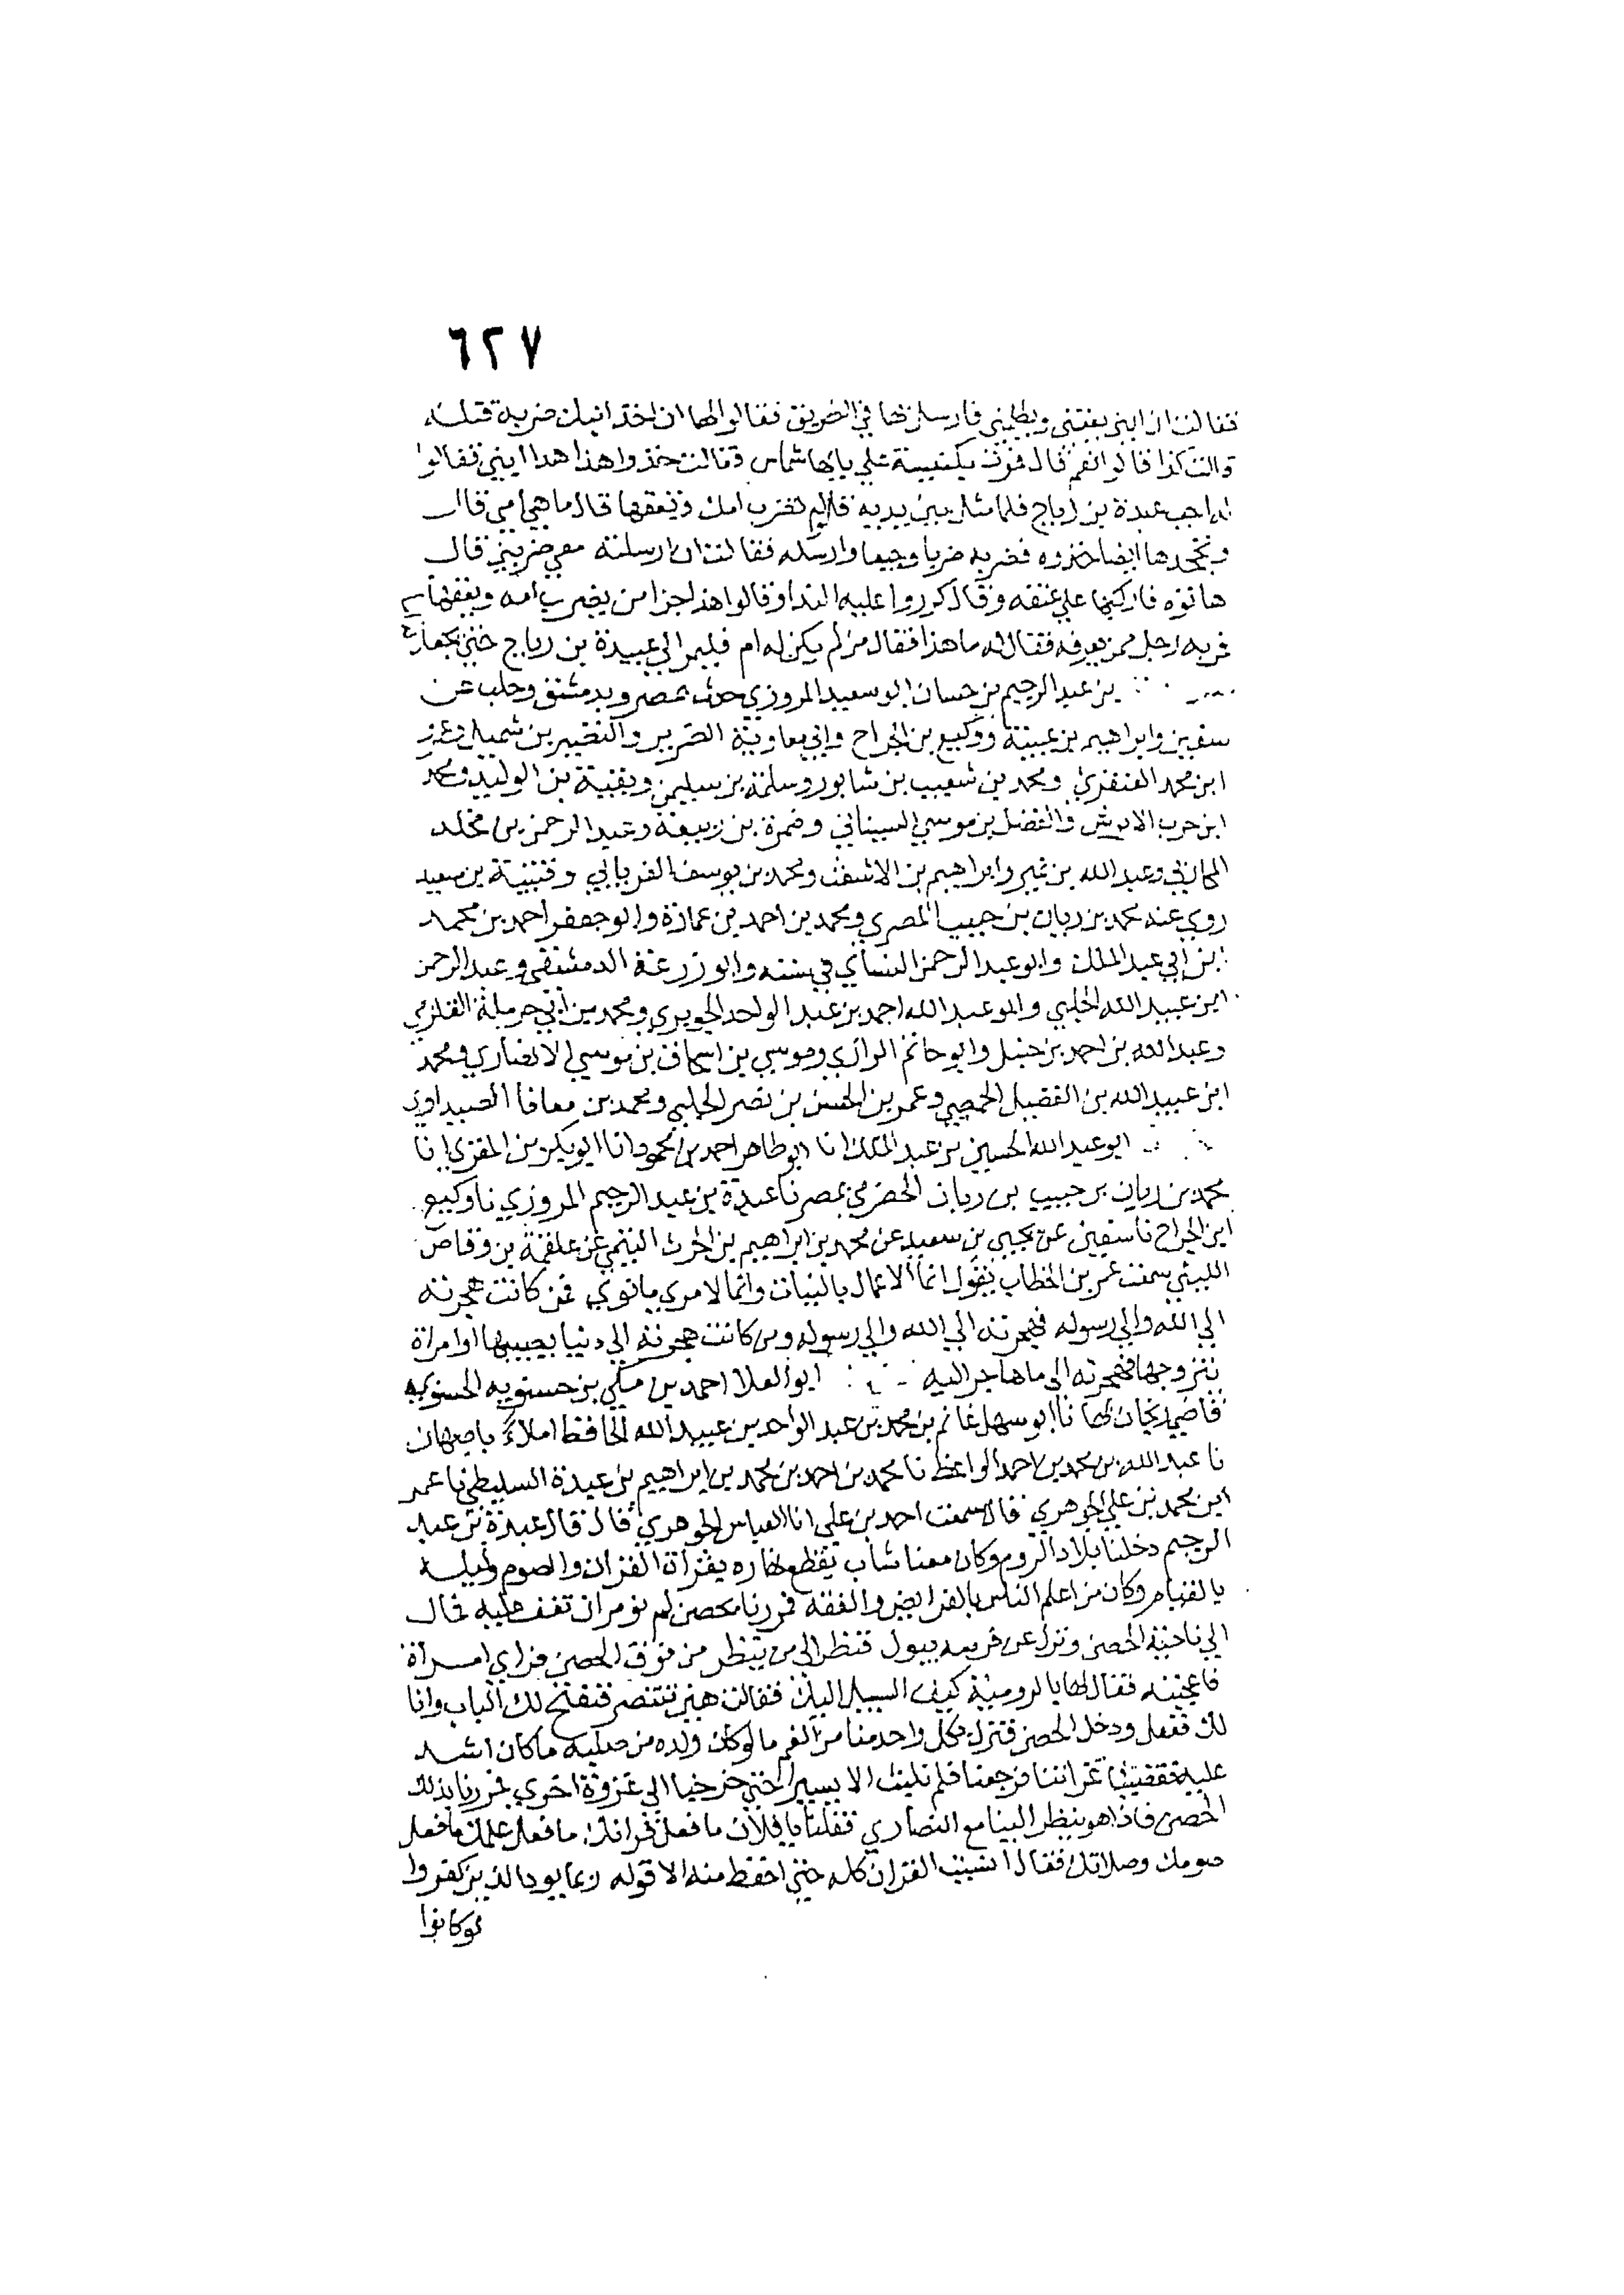 ٦٢٧
فقالت ان ابني يعقني ويظلمني فارسل معها في الطريق فقالوا لها ان اخذ ابنك ضربه قتله
قالت كذا قالوا نعم قال فمرت بكنيسة على بابها شماس فقالت خذوا هذا هذا ابني فقالوا
له اجب عبدة بن رباح فلما مثل بين يديه قال لم تضرب امك وتعقها قال ما هي امي قال
وتجحدها ايضا خذوه فضربه ضربا وجيعا وارسله فقالت ان ارسلته معي ضربني قال
هاتوه فاركبها على عنقه وقال كرروا عليه الندا وقالوا هذا جزا من يضرب امه ويعقها
فمر به رجل ممن يعرفه فقال له ما هذا فقال من لم يكن له ام فليمر الى عبيدة بن رباح حتى يجعل له
بن عبد الرحيم بن حسان ابو سعيد المروزي حدث بمصر وبدمشق وحلب عن
سفين وابراهيم بن عيينة ووكيع بن الجراح وابي معاوية الضرير والنضر بن شميل وعمرو
ابن محمد العنقزي ومحمد بن شعيب بن شابور وسلمة بن سليمن وبقية بن الوليد ومحمد
ابن حرب الابرش والفضل بن موسي السيناني وضمرة بن ربيعة وعبد الرحمن بن مخلد
وعبد الله بن نمير وابراهيم بن الاشعث ومحمد بن يوسف الفريابي وقتيبة بن سعيد
روي عنه محمد بن ربان بن حبيب المصري ومحمد بن احمد بن عمارة وابو جعفر احمد بن محمد
بن ابي عبد الملك وابو عبد الرحمن النساي في سننه وابو زرعة الدمشقي وعبد الرحمن
ابن عبيد الله الحلبي وابو عبد الله احمد بن عبد الواحد الجوبري ومحمد بن ابي حرملة القلزمي
وعبد الله بن احمد بن حنبل وابو حاتم الرازي وموسي بن اسحاق بن موسي الانصاري ومحمد
ابن عبيد الله بن الفضيل الحمصي وعمر بن الحسن بن نصر الحلبي ومحمد بن معافا الصيداوي
ابو عبد الله الحسين بن عبد الملك انا ابو طاهر احمد بن محمود انا ابو بكر بن المقري انا
محمد بن ربان بن حبيب بن ربان الحضرمي بمصر نا عبدة بن عبد الرحيم المروزي نا وكيع
ابن الجراح نا سفين عن يحيي بن سعيد عن محمد بن ابراهيم بن الحرث التيمي عن علقمة بن وقاص
الليثي سمعت عمر بن الخطاب يقول انما الاعمال بالنيات وانما لامري ما نوي فمن كانت هجرته
الي الله والي رسوله فهجرته الي الله والي رسوله ومن كانت هجرته الي دنيا يصيبها او امراة
يتزوجها فهجرته الى ما هاجر اليه ابو العلا احمد بن مكي بن حسنويه الحسنويي
قاضي زنجان بها نا ابو سهل غانم بن محمد بن عبد الواحد بن عبيد الله الحافظ املاء باصبهان
نا عبد الله بن محمد بن احمد الواعظ نا محمد بن احمد بن محمد بن ابراهيم بن عبدة السليطي نا عمر
ابن محمد بن علي الجوهري قال سمعت احمد بن علي انا العباس الجوهري قال قال عبدة بن عبد
الرحيم دخلنا بلاد الروم وكان معنا شاب يقطع نهاره بقراة القران والصوم وليله
بالقيام وكان من اعلم الناس بالفرايض والفقه فمررنا بحصن لم نومر ان نقف عليه فمال
الي ناحية الحصن ونزل عن فرسه يبول فنظر الى من ينظر من فوق الحصن فراي امراة
فاعجبته فقال لها بالرومية كيف السبيل اليك فقالت هين تتنصر فنفتح لك الباب وانا
لك ففعل ودخل الحصن فنزل بكل واحد منا من الغم ما لو كان ولده من صلبه ما كان اشد
عليه فقضينا غزاتنا فرجعنا فلم نلبث الا يسيرا حتي خرجنا الى غزوة اخري فمررنا بذلك
الحصن فاذا هو ينظر الينا مع النصاري فقلنا يا فلان ما فعل قرانك ما فعل علمك ما فعل
صومك وصلاتك فقال انسيت القران كله حتي احفظ منه الا قوله ربما يود الذين كفروا
لو كانوا